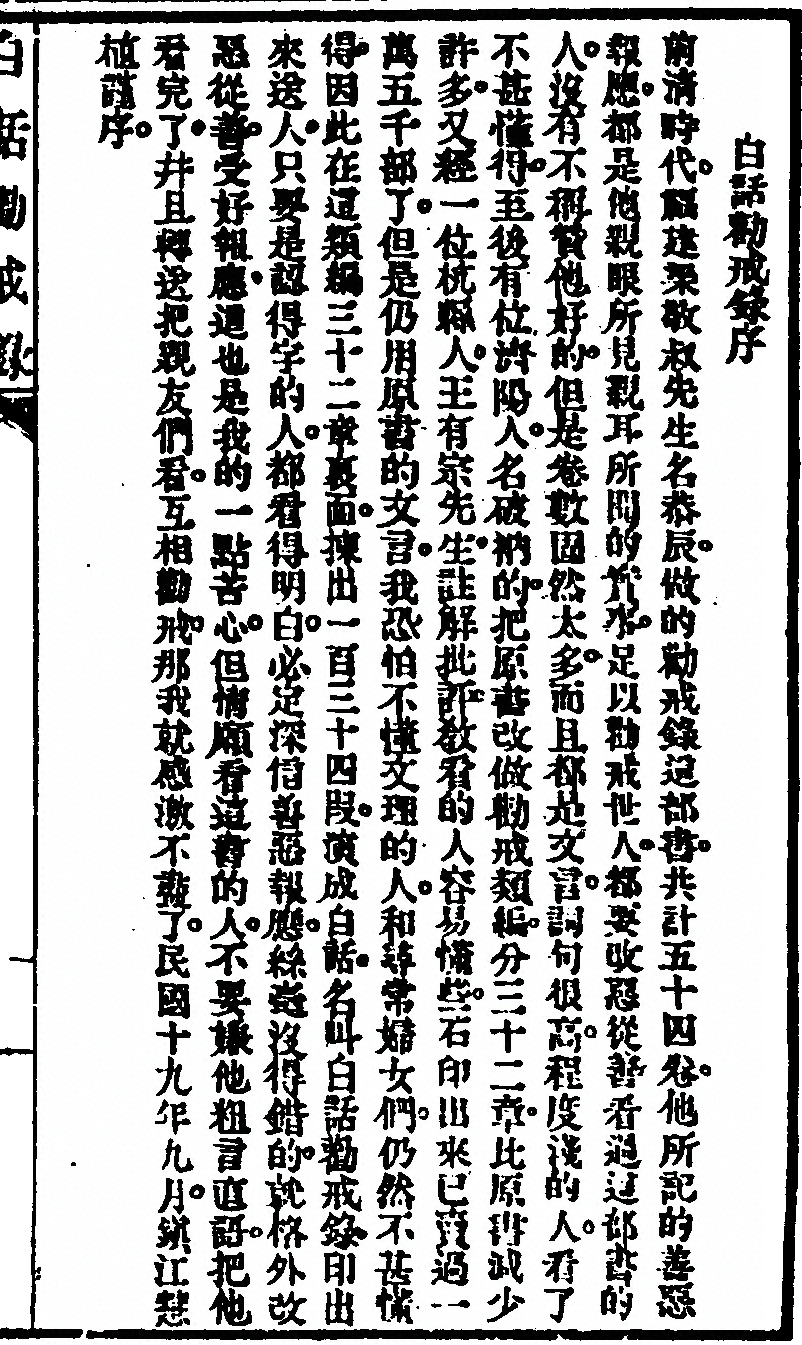 白話勸戒錄序
前清時代。福建梁敬叔先生名恭辰。做的勸戒錄這部書。共計五十四卷。他所記的善惡
報應。都是他親眼所見親耳所聞的實事。足以勸戒世人。都要改惡從善。看過這部書的
人。沒有不稱贊他好的。但是卷數固然太多。而且都是文言。詞句很高。程度淺的人。看了
不甚懂得。至後有位濟陽人。名破衲的。把原書改做勸戒類編。分三十二章。比原書減少
許多。又經一位杭縣人。王有宗先生。註解批評。敎看的人容易懂些。石印出來已賣過一
萬五千部了。但是仍用原書的文言。我恐怕不懂文理的人。和尋常婦女們。仍然不甚懂
得。因此在這類編三十二章裏面。揀出一百三十四段。演成白話。名叫白話勸戒錄。印出
來送人。只要是認得字的人。都看得明白。必定深信善惡報應。絲毫沒得錯的。就格外改
惡從善。受好報應。這也是我的一點苦心。但情願看這書的人。不要嫌他粗言直語。把他
看完了。幷且轉送把親友們看。互相勸戒。那我就感激不盡了。民國十九年九月。鎮江慧
植謹序。
白話勸戒錄